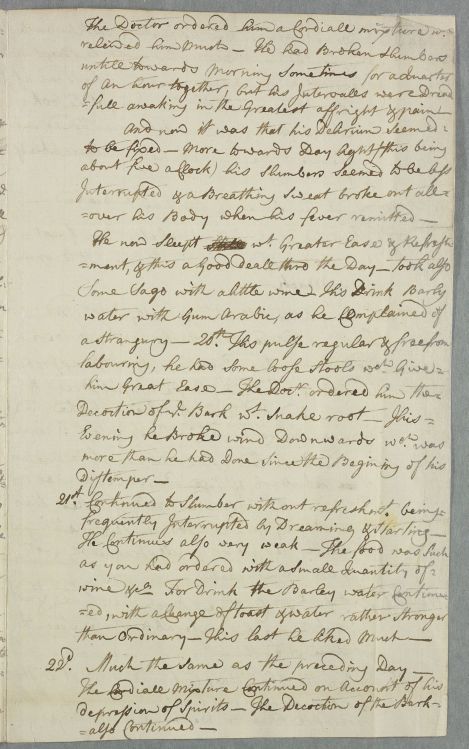 The Doctor ordered him a Cordiall mixture wch
relieved him Much — He had Broken Slumbers
untill towards Morning Sometimes for a Quarter
of an hour together, but his Intervalls were Dread
=full awaking in the Greatest affright & pain —
And now it was that his Delirium Seemed=
to be fixed — More towards Day Light (this being
about five a Clock) his Slumbers Seemed to be less
Interrupted & a Breathing Sweat broke out all=
=over his Body when his fever remitted —
He now Sleept wt. Greater Ease & Refresh=
=ment, & this a Good deale thro the Day — took also
Some Sago with a little wine — His Drink Barly
water with Gum Arabic, as he Complained of
a strangury — 20th. His pulse regular & free from
labouring, he had some loose Stools wch Gave=
him Great Ease — The Docr. ordered him the=
Decoction of ye. Bark wt. Snake root — This=
Evening he Broke wind Downwards wch. was
more than he had Done Since the Begining of his
Distemper —
21st. Continued to Slumber without refreshmt. being=
frequently Interrupted by Dreaming & Starting —
He Continues also very weak — The food was Such
as you had ordered with a Small Quantity of=
wine &ca For Drink the Barley water Continu
=ed, with a Change of toast & water rather Stronger
than Ordinary — This last he liked Much —
22d. Much the Same as the preceding Day —
The Cordiall Mixture Continued on Account of his
depression of Spirits — The Decoction of the Bark=
=also Continued —